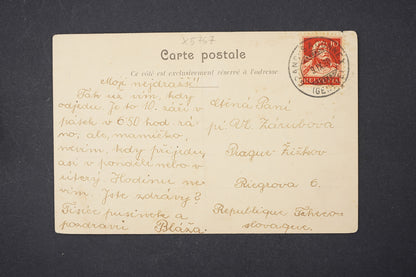 X5767
Carte postale
Ce côté est exclusivement réservé à l'adresse
Moji nejdražší!
Tak už vím, kdy
odjedu. Je to 10. září v
pátek v 6'50 hod. rá-
no, ale, mamičko,
nevím, kdy přijedu,
asi v pondělí nebo v
úterý. Hodinu ne-
vím. Jste zdrávy?
Tisíc pusinek a
pozdravů Bláža.
10
HELVETIA
Ctěná Paní
pí. Zárubová
Prague Žižkov
Riegrova 6.
Republique Tcheco-
slovaque.